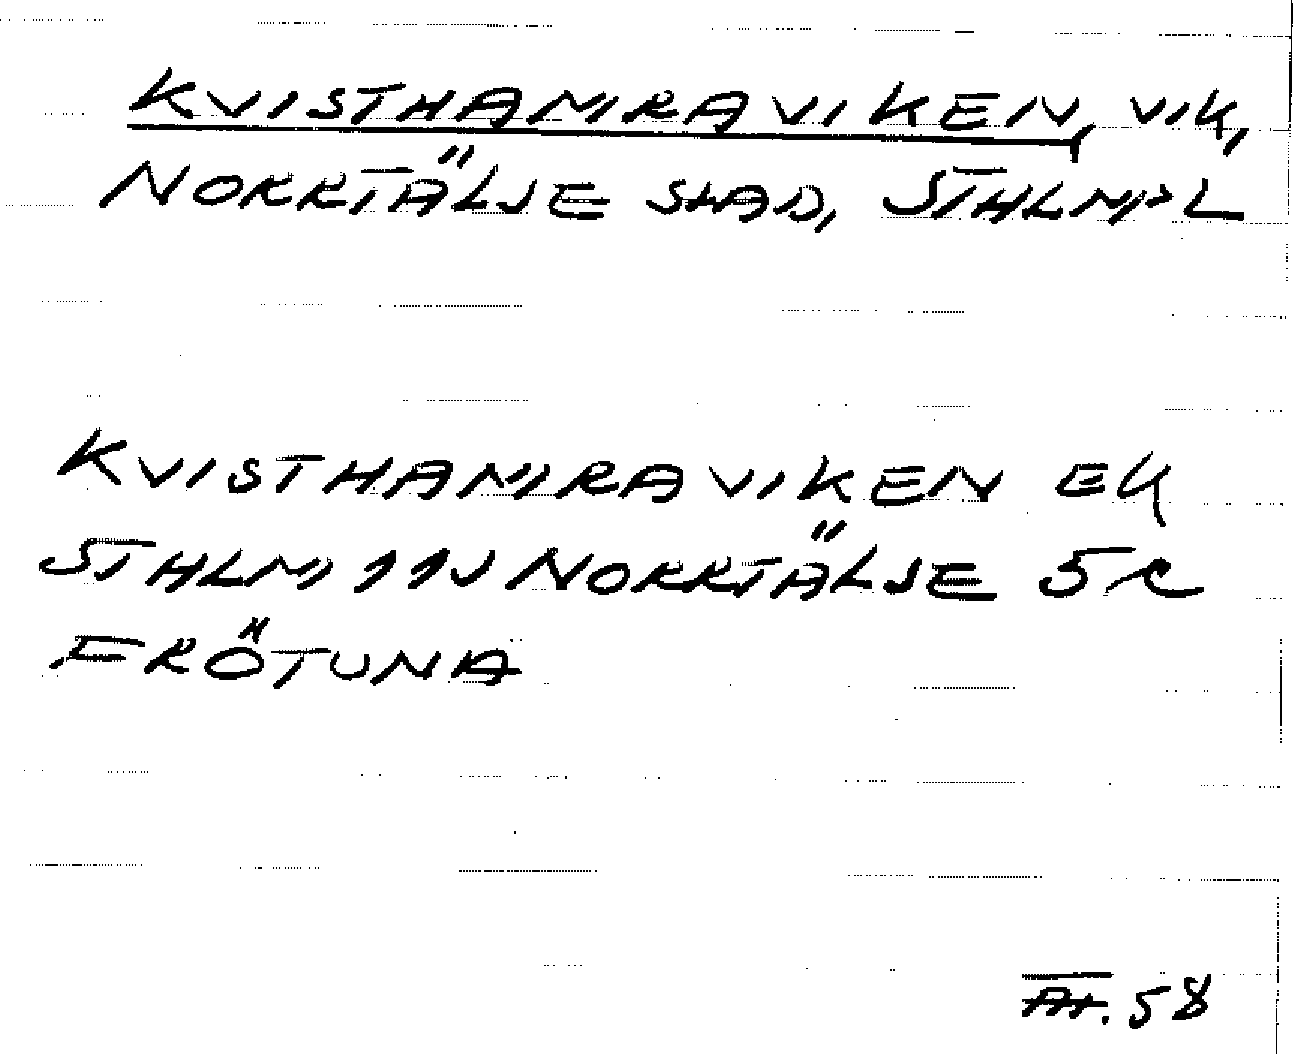 KVISTHAMRAVIKEN, VIK,
NORRTÄLJE STAD, STHLMS L
KVISTHAMRAVIKEN EK
STHLM 11J NORRTÄLJE 5 R
FRÖTUNA
58